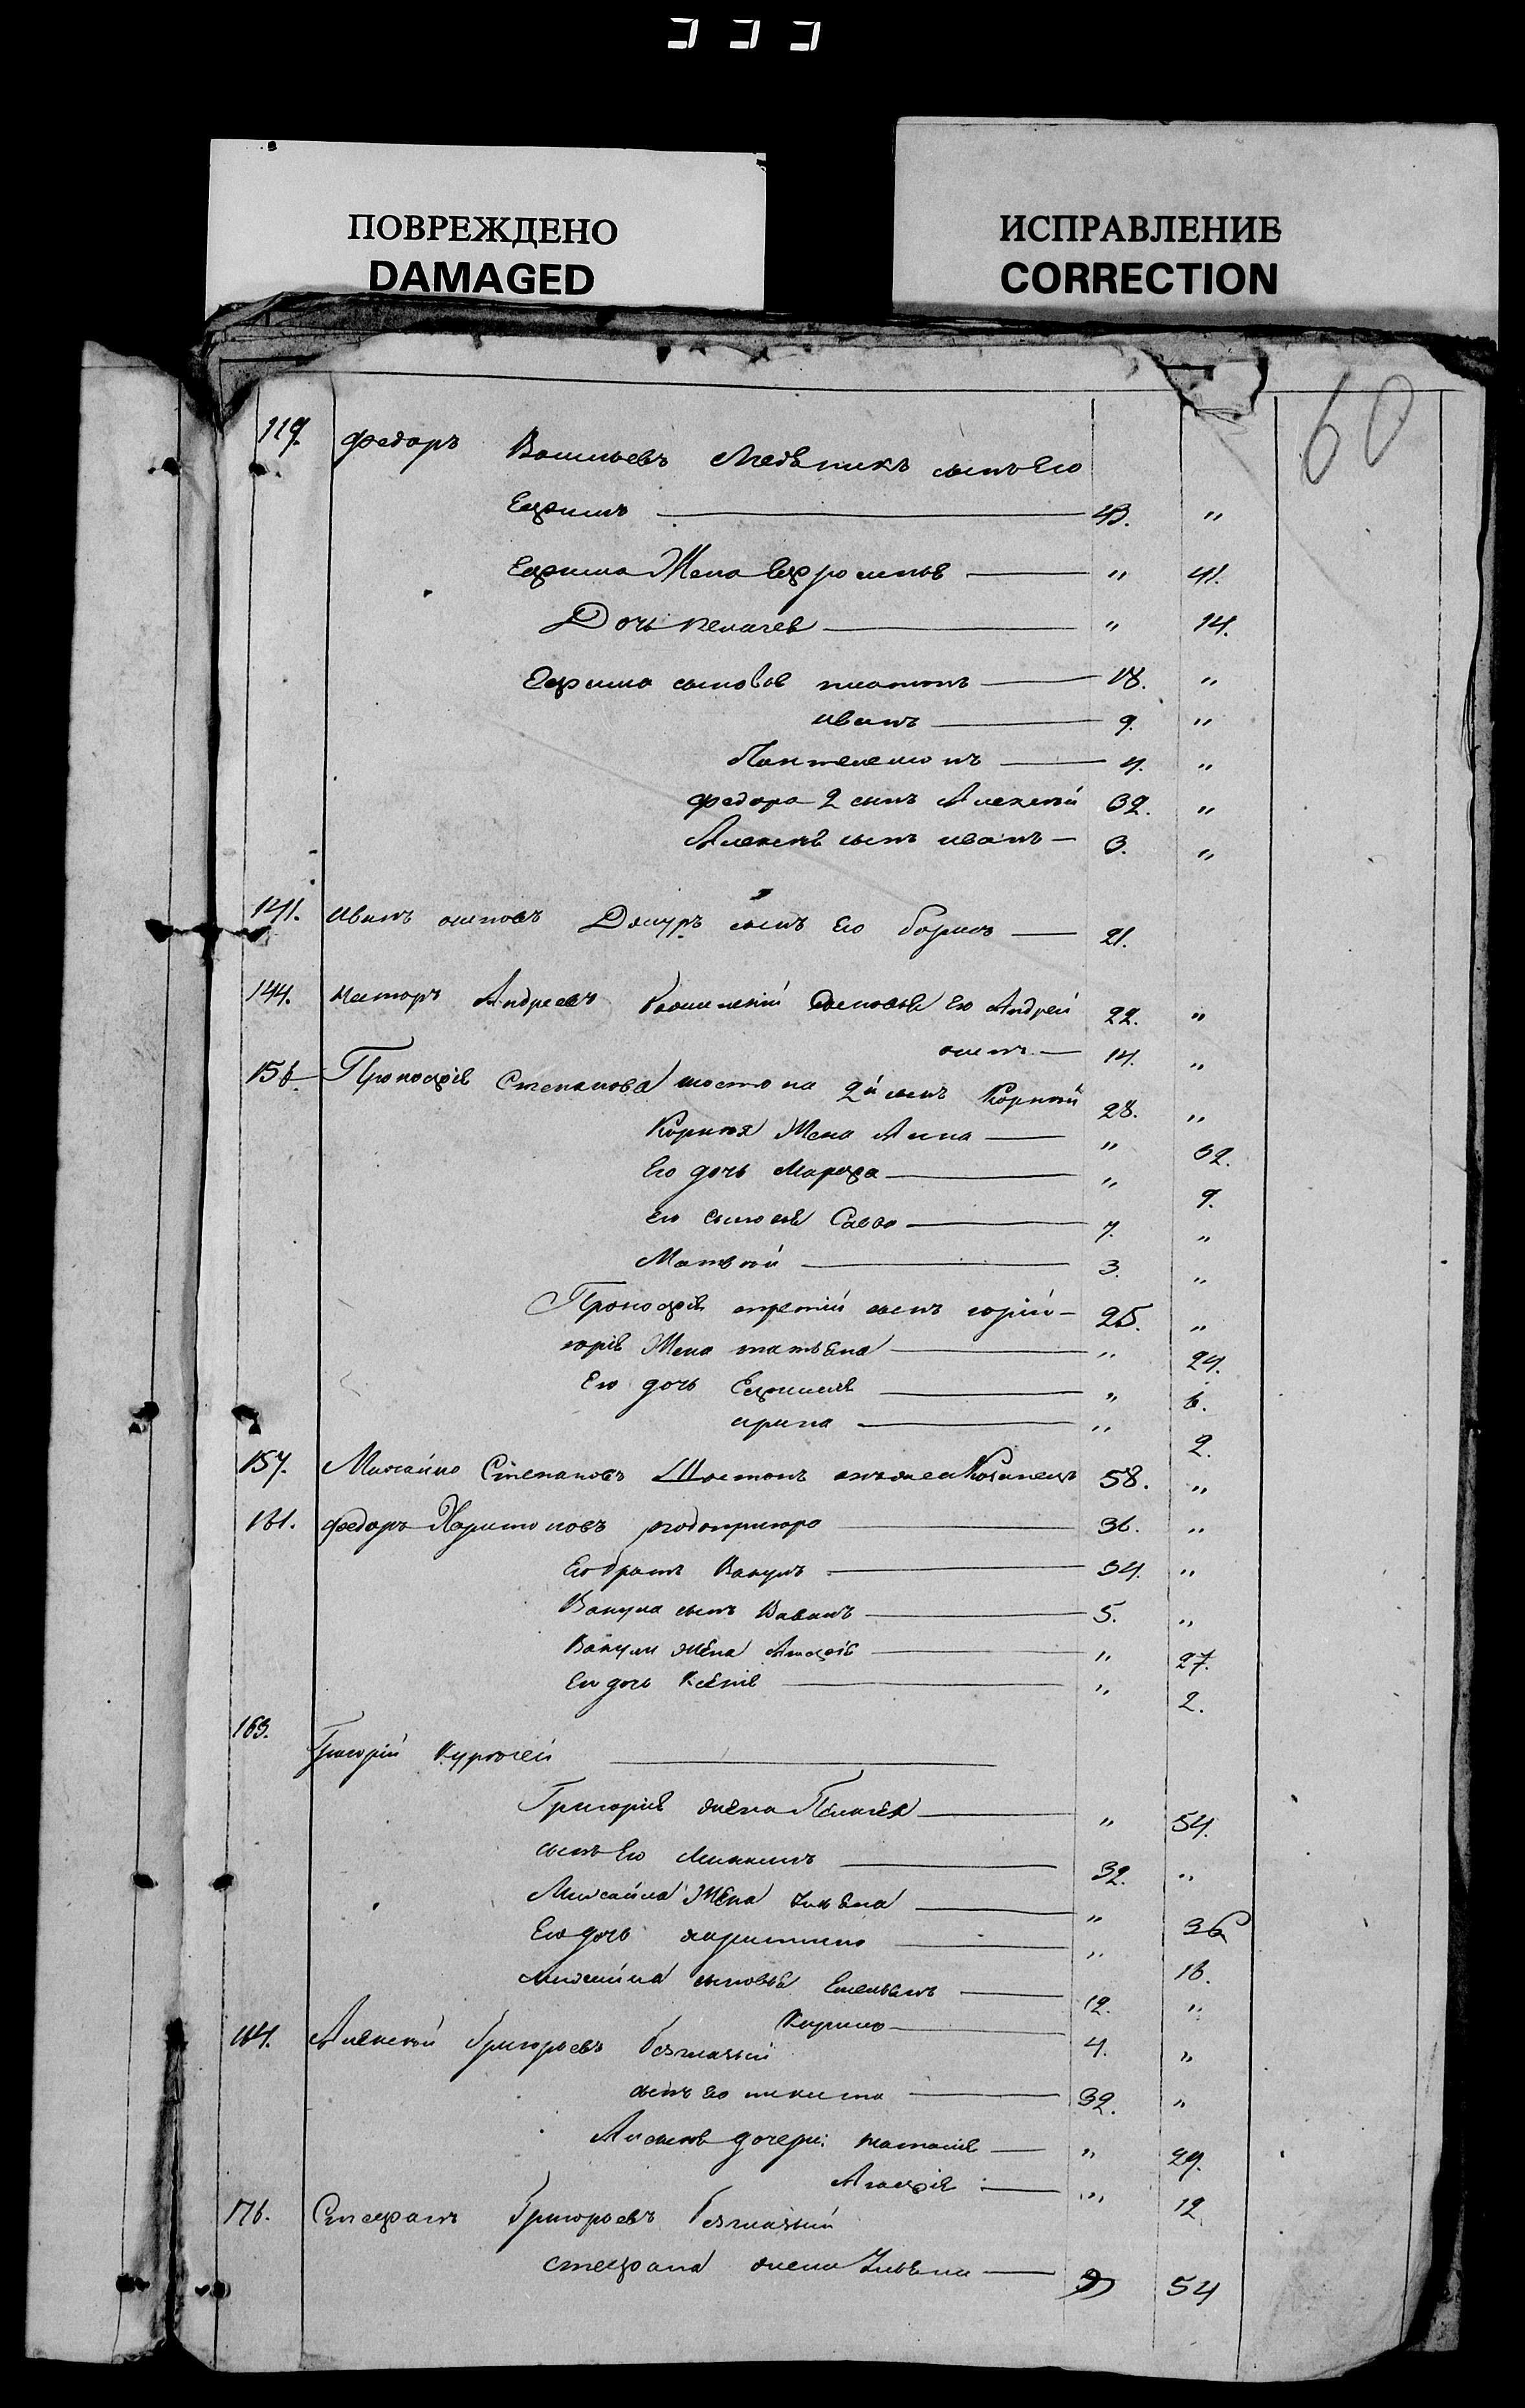 ПОВРЕЖДЕНО
DAMAGED
ИСПРАВЛЕНИЕ
CORRECTION
60
119. Федоръ Васильевъ Медвникъ сынъ Его
Ефимъ 43. "
Ефима Жена Ефросинья " 41.
Дочь Пелагея " 14.
Ефима сыновья платонъ 18. "
иванъ 9. "
Пантелемонъ 4. "
Федора 2 сынъ Алексей 32. "
Алексея сынъ иванъ 3. "
141. иванъ осиповъ сынъ Его борисъ 21.
144. нестеръ Андреевъ сыновья Его Андрей 22. "
осипъ 14. "
156 Прокофія Степанова 2й сынъ Корний 28. "
Корния Жена Анна " 32.
Его дочь Марфа " 9.
Его сыновья Савва 7. "
Матвей 3. "
Прокофія третій сынъ юрій 25. "
юрія Жена татьяна " 24.
Его дочь Ефимия " 6.
ирина " 2.
157. Михайло Степановъ Шостопъ 58. "
161. Федоръ Харитоновъ 36. "
Его братъ Вакулъ 34. "
Вакула сынъ 5. "
Вакулы жена Агафія " 27.
Его дочь Ксенія " 2.
163. Григорій
Григорія жена Пелагея " 54.
сынъ Его 32. "
Михайла Жена ульяна " 36
Его дочь христина " 16.
Михайла сыновья Емельянъ 12. "
Кирило 4. "
164. Алексей Григорьевъ безглазый
сынъ его никита 32. "
дочери: наталія " 29.
Агафія " 12
176. Стефанъ Григорьевъ безглазый
стефана жена Ульяна 54